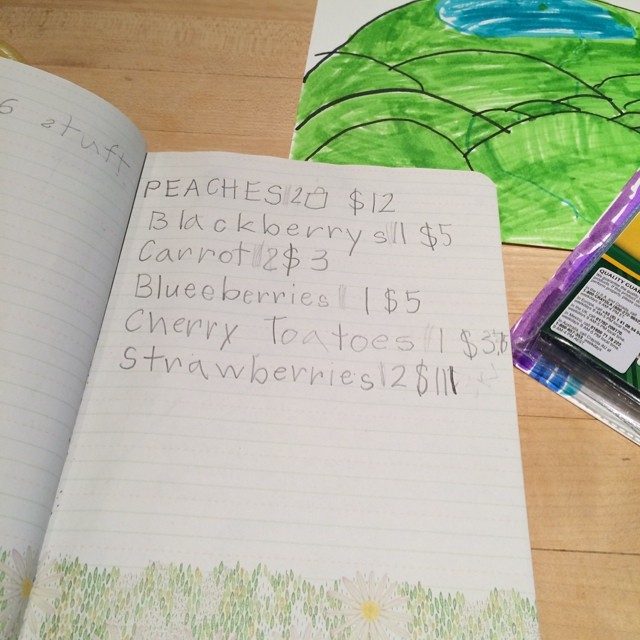 6 stuff
PEACHES 2 $12
Blackberrys 1 $5
Carrot 2 $3
Blueeberries 1 $5
Cherry Toatoes 1 $3
Strawberries 2 $11
QUALITY GUA